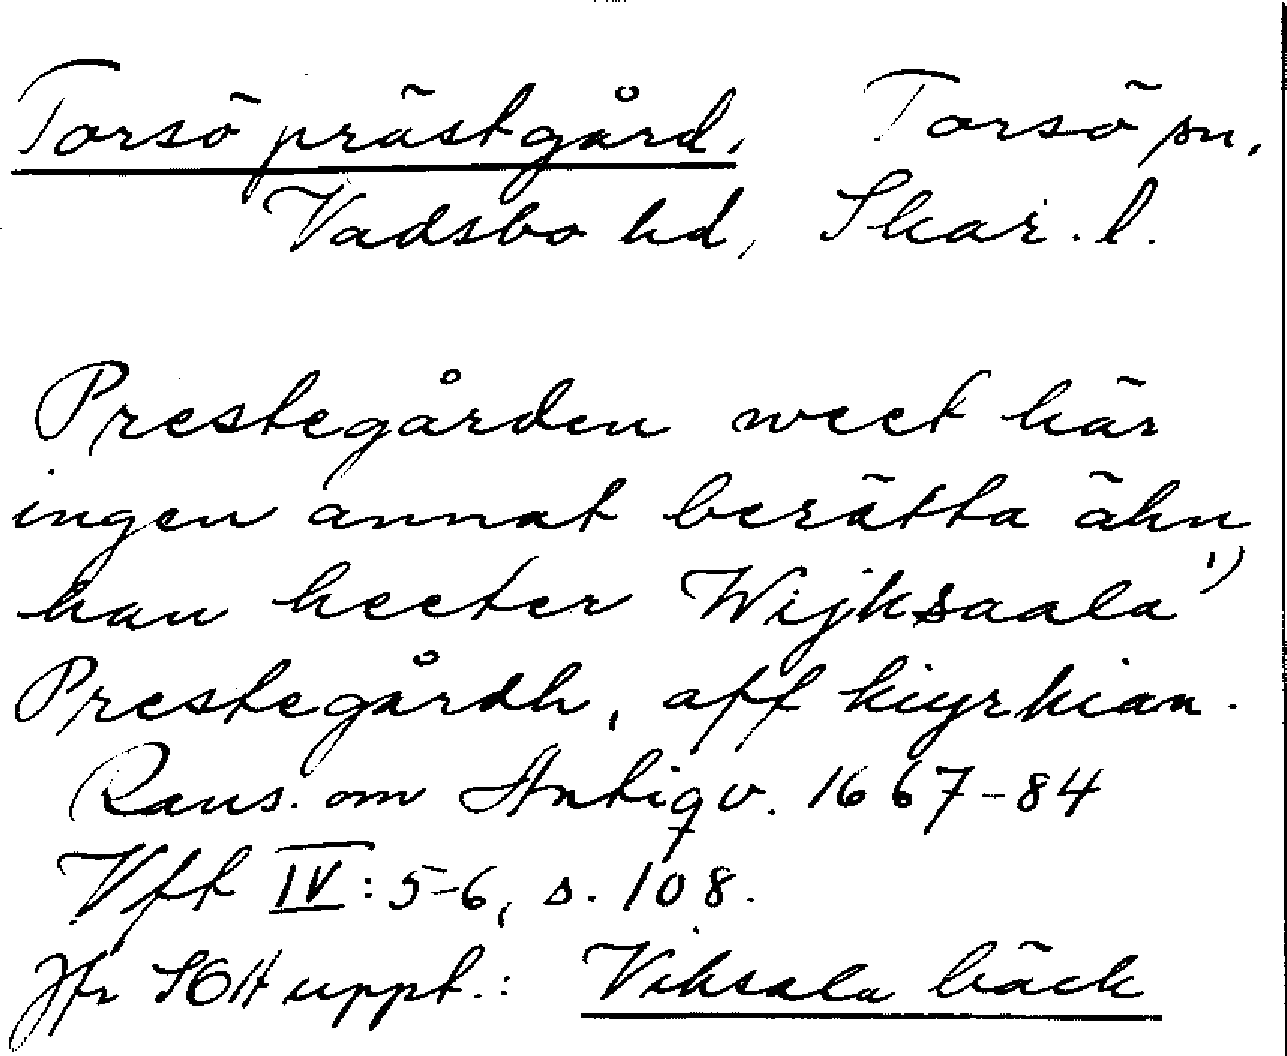 Torsö prästgård. Torsö sn,
Vadsbo hd, Skar. l.
Prestegården weet här
ingen annat berätta ähn
han heeter Wijksaala 1)
Prestegårdh, aff kiyrkian.
Rans. om Antiqv. 1667-84
Vft IV: 5-6, s. 108.
Jfr SOH uppt.: Viksala bäck